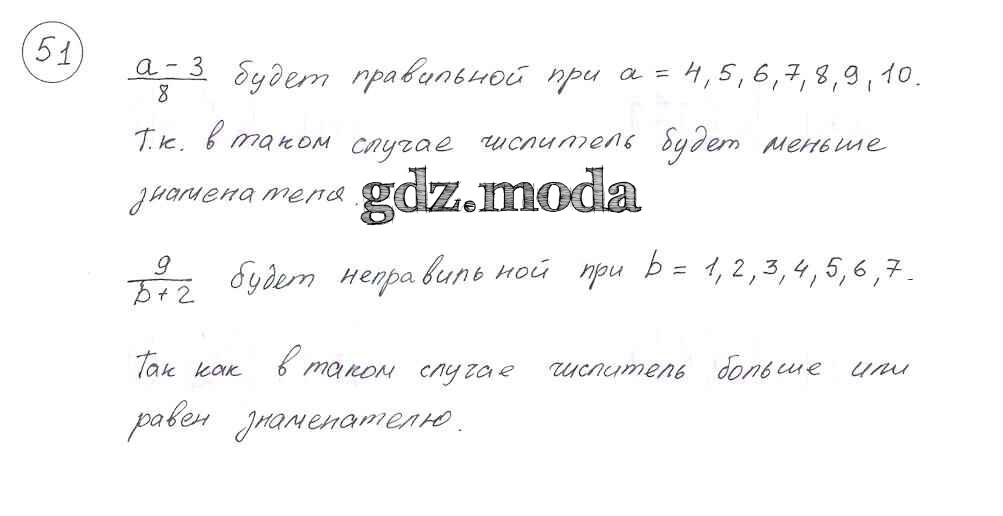 51
(a - 3)/8 будет правильной при a = 4, 5, 6, 7, 8, 9, 10.
Т.к. в таком случае числитель будет меньше
знаменателя.
gdz.moda
9/(b + 2) будет неправильной при b = 1, 2, 3, 4, 5, 6, 7.
Так как в таком случае числитель больше или
равен знаменателю.